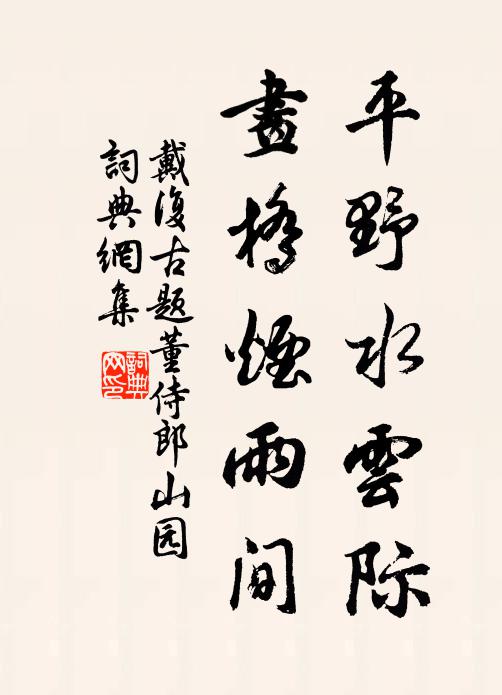 平野水雲際
畫橋煙雨間
戴復古題董侍郎山园
詞典網集
詞典網印